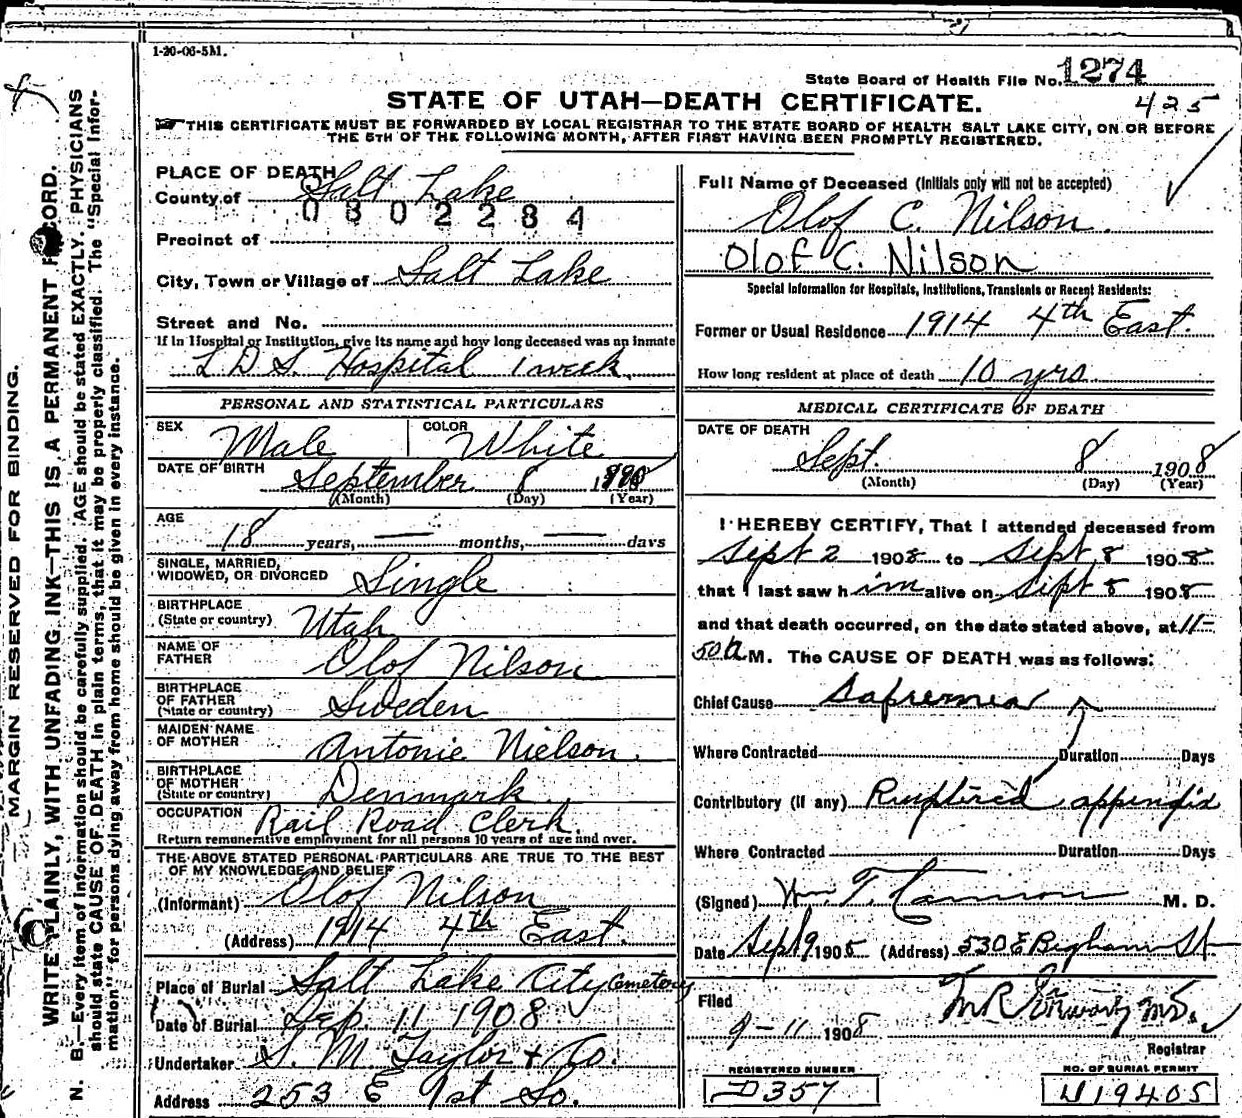 1-20-06-5M.
State Board of Health File No. 1274
STATE OF UTAH—DEATH CERTIFICATE.
425
THIS CERTIFICATE MUST BE FORWARDED BY LOCAL REGISTRAR TO THE STATE BOARD OF HEALTH SALT LAKE CITY, ON OR BEFORE
THE 5TH OF THE FOLLOWING MONTH, AFTER FIRST HAVING BEEN PROMPTLY REGISTERED.
MARGIN RESERVED FOR BINDING.
WRITE PLAINLY, WITH UNFADING INK—THIS IS A PERMANENT RECORD.
N. B.—Every item of information should be carefully supplied. AGE should be stated EXACTLY. PHYSICIANS
should state CAUSE OF DEATH in plain terms, that it may be properly classified. The "Special Infor-
mation" for persons dying away from home should be given in every instance.
PLACE OF DEATH
County of Salt Lake
0802284
Precinct of
City, Town or Village of Salt Lake
Street and No.
If in Hospital or Institution, give its name and how long deceased was an inmate
L D S Hospital 1 week
PERSONAL AND STATISTICAL PARTICULARS
SEX Male COLOR White
DATE OF BIRTH September 8
(Month) (Day) (Year)
AGE
18 years, — months, — days
SINGLE, MARRIED,
WIDOWED, OR DIVORCED Single
BIRTHPLACE
(State or country) Utah
NAME OF
FATHER Olof Nilson
BIRTHPLACE
OF FATHER
(State or country) Sweden
MAIDEN NAME
OF MOTHER Antonie Nielson.
BIRTHPLACE
OF MOTHER
(State or country) Denmark
OCCUPATION Rail Road Clerk.
Return remunerative employment for all persons 10 years of age and over.
THE ABOVE STATED PERSONAL PARTICULARS ARE TRUE TO THE BEST
OF MY KNOWLEDGE AND BELIEF
(Informant) Olof Nilson
(Address) 1914 4th East.
Place of Burial Salt Lake City Cemetery
Date of Burial Sep. 11 1908
Undertaker S. M. Taylor + Co.
Address 253 E 1st So.
Full Name of Deceased (Initials only will not be accepted)
Olof C. Nilson.
Olof C. Nilson
Special Information for Hospitals, Institutions, Transients or Recent Residents:
Former or Usual Residence 1914 4th East.
How long resident at place of death 10 yrs
MEDICAL CERTIFICATE OF DEATH
DATE OF DEATH
Sept. 8 1908
(Month) (Day) (Year)
I HEREBY CERTIFY, That I attended deceased from
Sept 2 1908 to Sept 8 1908
that I last saw him alive on Sept 8 1908
and that death occurred, on the date stated above, at 11-
50 a M. The CAUSE OF DEATH was as follows:
Chief Cause Sapremia
Where Contracted Duration Days
Contributory (if any) Ruptured appendix
Where Contracted Duration Days
(Signed) Wm. T. Cannon M. D.
Date Sept 9 1908 (Address) 530 E Brigham St
Filed
9-11 1908
Registrar
REGISTERED NUMBER
D357
NO. OF BURIAL PERMIT
U19405